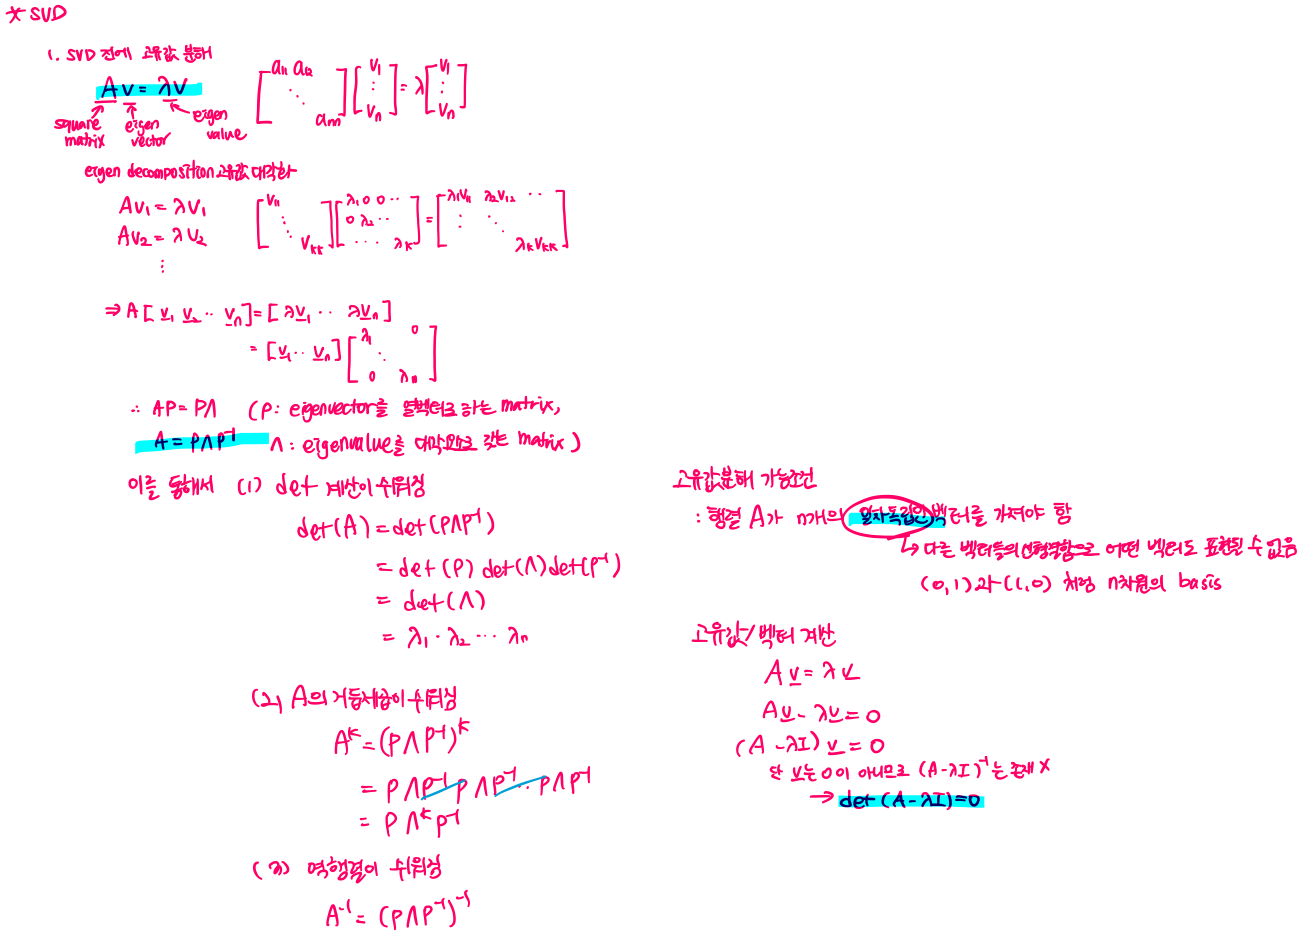 * SVD
1. SVD 전에 고유값 분해
Av = λv
square matrix
eigen vector
eigen value
[a11 a12 ⋱ ann] [v1 ⋮ vn] = λ [v1 ⋮ vn]
eigen decomposition 고유값 대각화
Av1 = λv1
Av2 = λv2
⋮
[v11 ⋱ vkk] [λ1 0 0 ·· 0 λ2 ·· ··· λk] = [λ1v11 λ2v12 ·· ⋮ ⋱ λkvkk]
⇒ A [v1 v2 ·· vn] = [λv1 ·· λvn]
= [v1 ·· vn] [λ1 0 ⋱ 0 λn]
∴ AP = PΛ (P: eigenvector를 열벡터로 하는 matrix,
A = PΛP⁻¹ Λ: eigenvalue를 대각원소로 갖는 matrix)
이를 통해서 (1) det 계산이 쉬워짐
det(A) = det(PΛP⁻¹)
= det(P) det(Λ) det(P⁻¹)
= det(Λ)
= λ1 · λ2 ··· λn
(2) A의 거듭제곱이 쉬워짐
Aᵏ = (PΛP⁻¹)ᵏ
= PΛP⁻¹ PΛP⁻¹ ·· PΛP⁻¹
= PΛᵏP⁻¹
(3) 역행렬이 쉬워짐
A⁻¹ = (PΛP⁻¹)⁻¹
고유값분해 가능조건
: 행렬 A가 n개의 일차독립인 벡터를 가져야 함
↳ 다른 벡터들의 선형결합으로 어떤 벡터도 표현될 수 없음
(0,1)과 (1,0) 처럼 n차원의 basis
고유값/벡터 계산
Av = λv
Av - λv = 0
(A - λI) v = 0
단 v는 0이 아니므로 (A-λI)⁻¹는 존재 X
→ det (A - λI) = 0